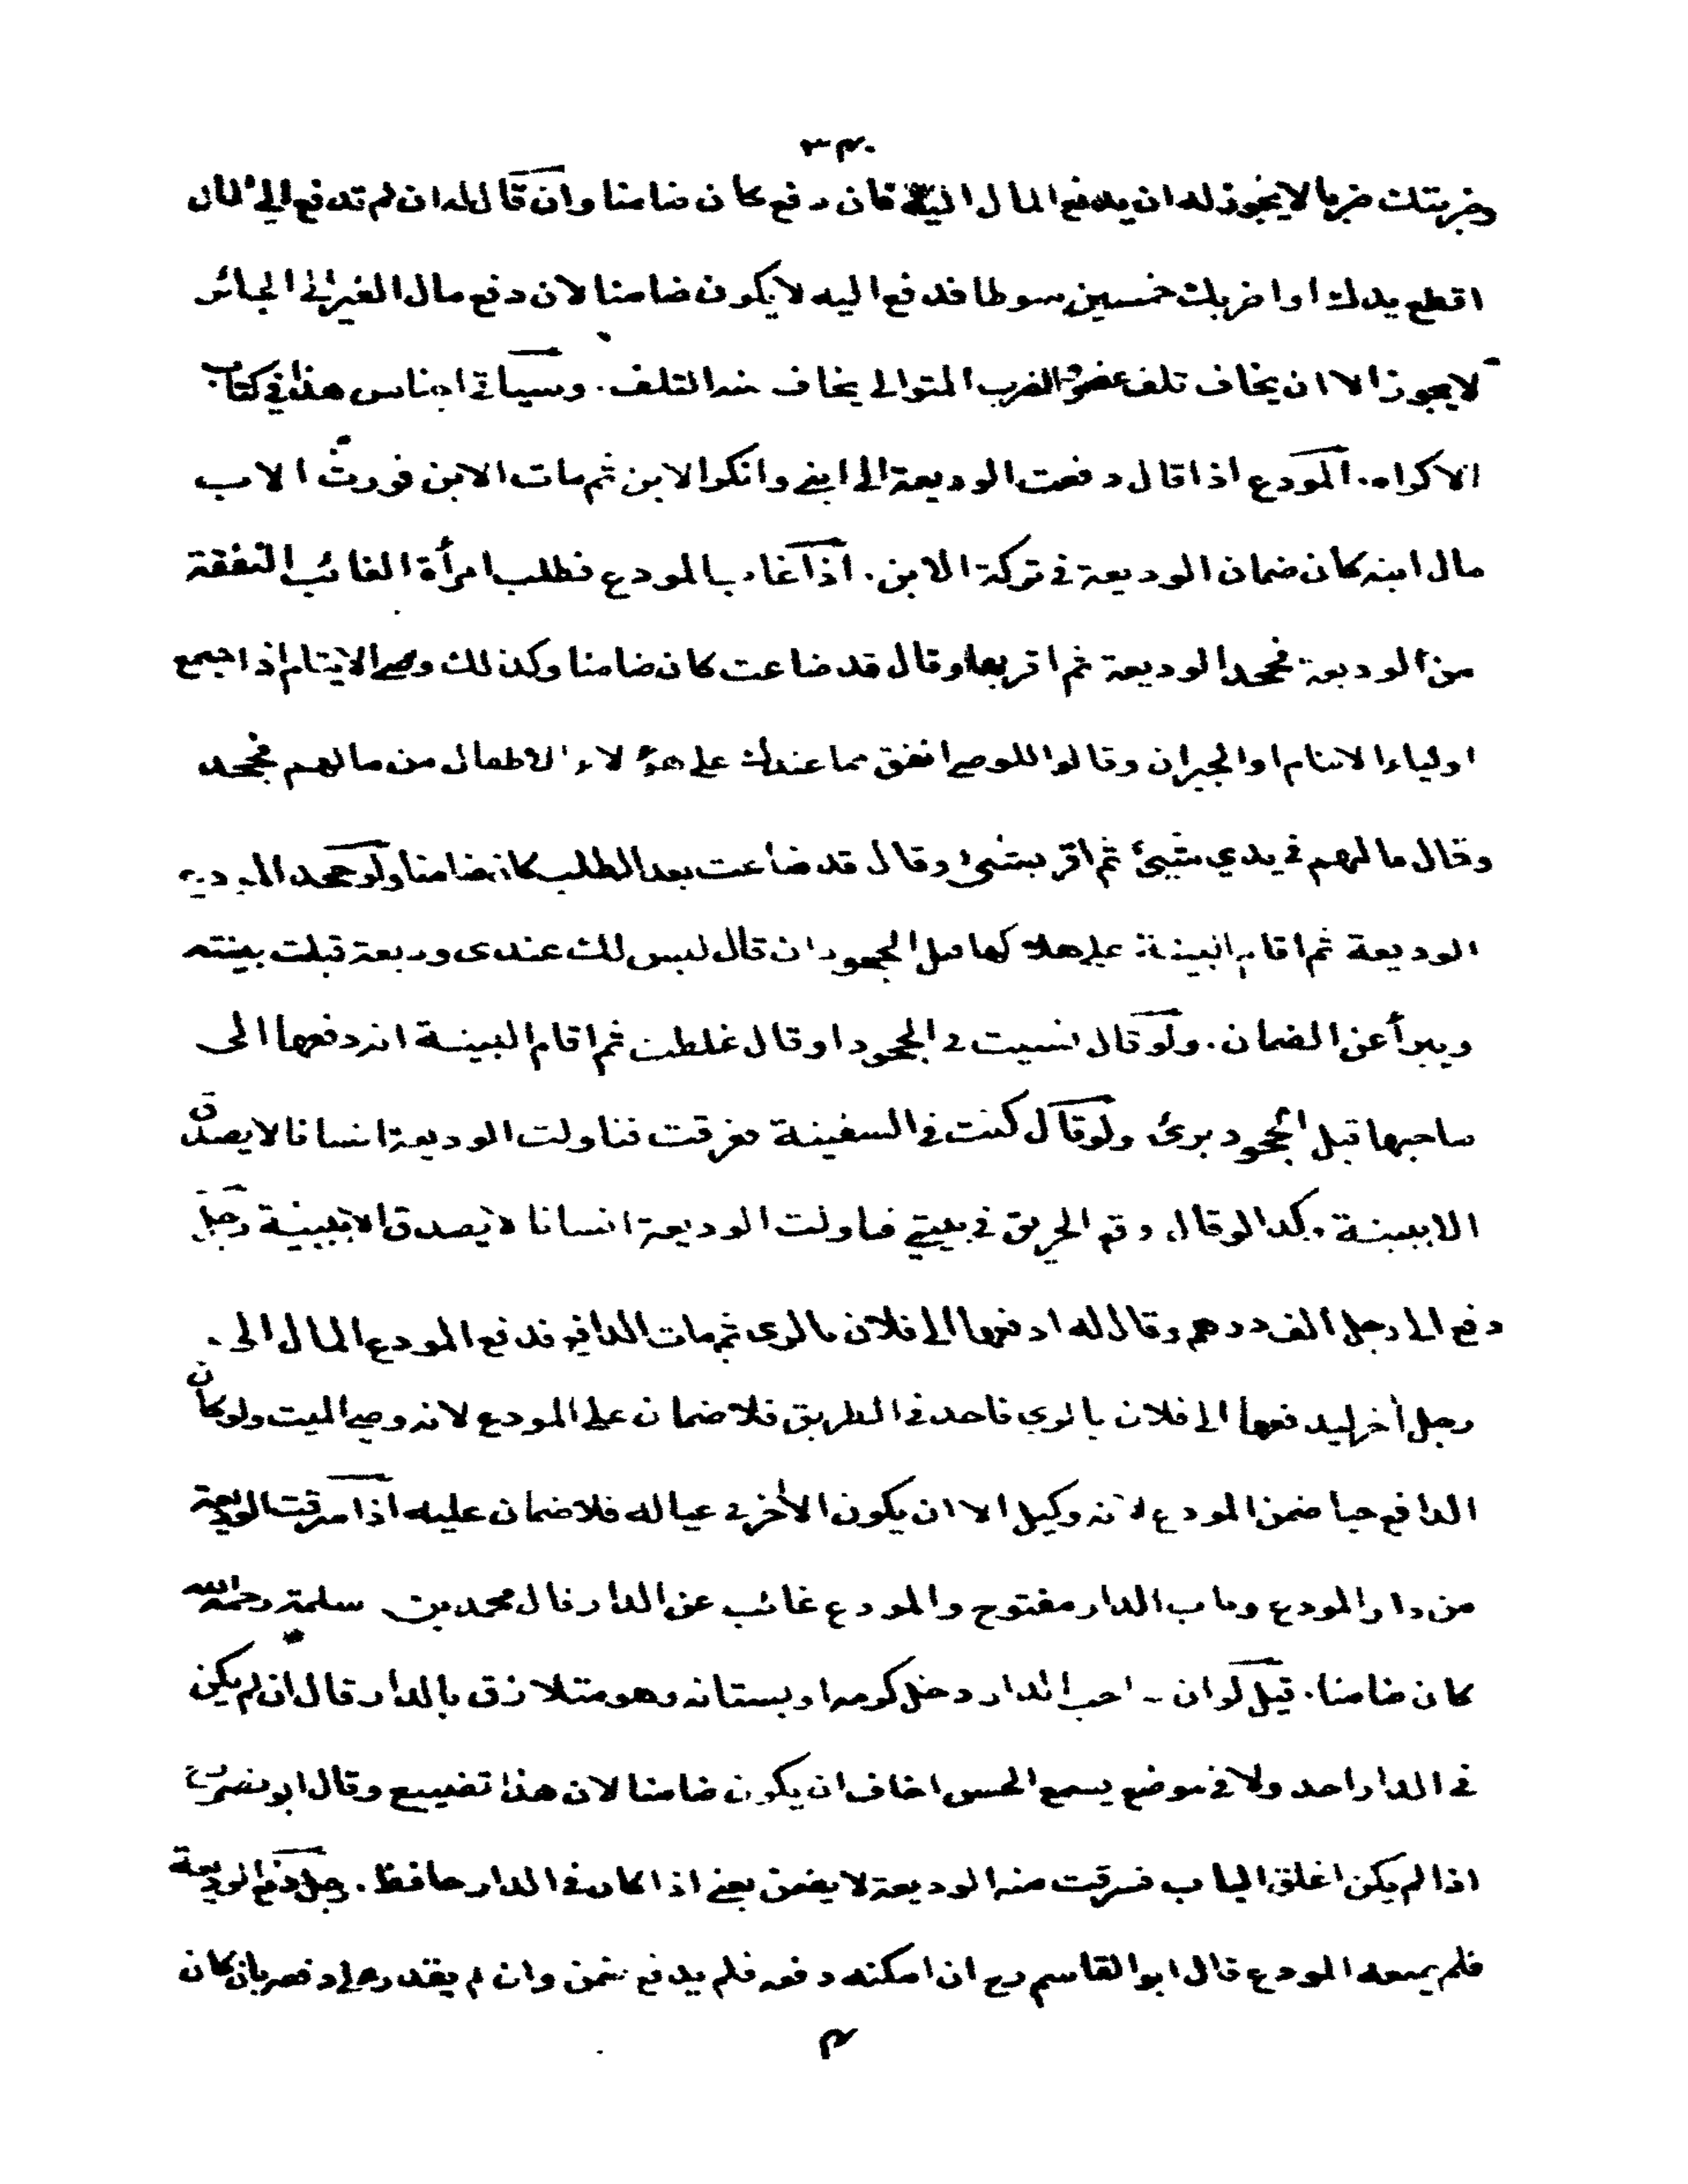 ٣٤٠
وضربتك ضربا لا يجوز له ان يدفع المال اليه فان دفع كان ضامنا وان قال له ان لم تدفع الي المال
اقطع يدك او اضربك خمسين سوطا فدفع اليه لا يكون ضامنا لان دفع مال الغير الى الجائر
لا يجوز الا ان يخاف تلف عضو والضرب المتوالي يخاف منه التلف. وسياتي اجناس هذا في كتاب
الاكراه. المودع اذا قال دفعت الوديعة الى ابني وانكر الابن ثم مات الابن فورث الاب
مال ابنه كان ضمان الوديعة في تركة الابن. اذا غاب المودع فطلب امرأة الغائب النفقة
من الوديعة فجحد الوديعة ثم اقر بها وقال قد ضاعت كان ضامنا وكذلك وصي الايتام اذا اجمع
اولياء الايتام او الجيران وقالوا للوصي انفق مما عندك على هؤلاء الاطفال من مالهم فجحد
وقال ما لهم في يدي شيئ ثم اقر بشيئ وقال قد ضاعت بعد الطلب كان ضامنا ولو جحد المودع
الوديعة ثم اقام البينة على هلاكها قبل الجحود ان قال ليس لك عندى وديعة قبلت بينته
ويبرأ عن الضمان. ولو قال نسيت في الجحود او قال غلطت ثم اقام البينة انه دفعها الى
صاحبها قبل الجحود برئ ولو قال كنت في السفينة فغرقت فناولت الوديعة انسانا لا يصدق
الا ببينة وكذا لو قال وقع الحريق في بيتي فناولت الوديعة انسانا لا يصدق الا ببينة رجل
دفع الى رجل الف درهم وقال له ادفعها الى فلان بالرى ثم مات الدافع فدفع المودع المال الى
رجل أخر ليدفعها الى فلان بالري فاخذ في الطريق فلا ضمان على المودع لانه وصي الميت ولو كان
الدافع حيا ضمن المودع لانه وكيل الا ان يكون الأخر في عياله فلا ضمان عليه اذا سرقت الوديعة
من دار المودع وباب الدار مفتوح والمودع غائب عن الدار قال محمد بن سلمة رحمه الله
كان ضامنا. قيل لو ان صاحب الدار دخل كرمه او بستانه وهو متلازق بالدار قال ان لم يكن
في الدار احد ولا في موضع يسمع الحس اخاف ان يكون ضامنا لان هذا تضييع وقال ابو نصر رح
اذا لم يكن اغلق الباب فسرقت منه الوديعة لا يضمن يعني اذا كان في الدار حافظ. رجل دفع الوديعة
فلم يمنعه المودع قال ابو القاسم رح ان امكنه دفعه فلم يدفع ضمن وان لم يقدر على دفعه بان كان